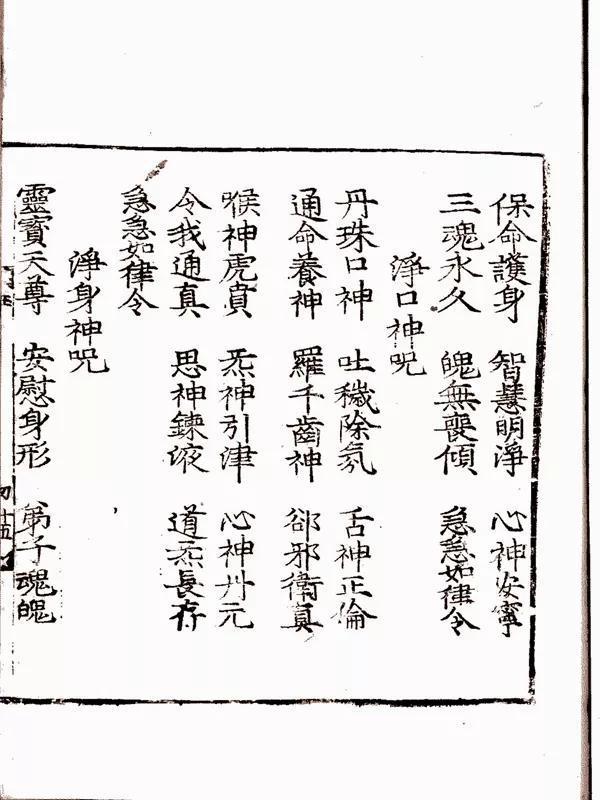 保命護身 智慧明淨 心神安寧
三魂永久 魄無喪傾 急急如律令
淨口神咒
丹珠口神 吐穢除氛 舌神正倫
通命養神 羅千齒神 郤邪衛真
喉神虎賁 炁神引津 心神丹元
令我通真 思神鍊液 道炁長存
急急如律令
淨身神咒
靈寳天尊 安慰身形 弟子魂魄